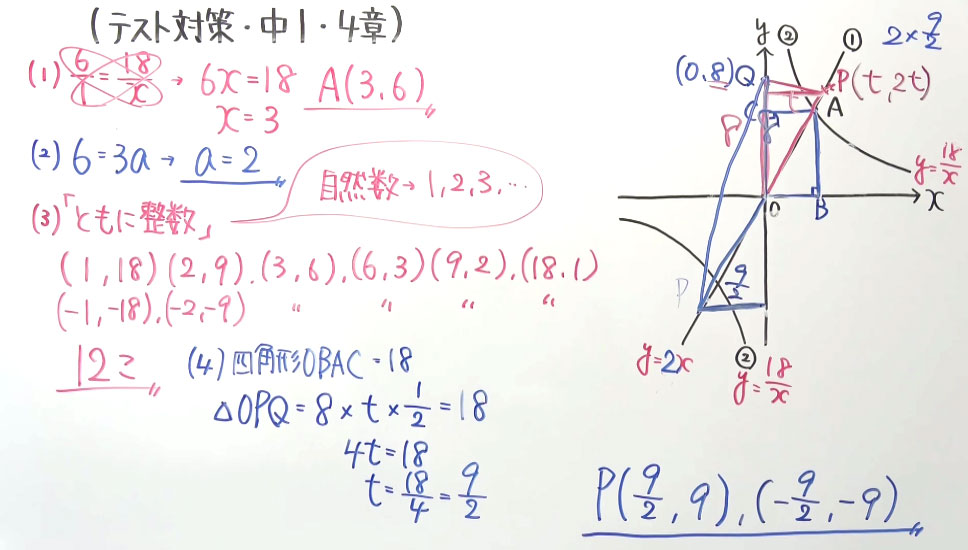 (テスト対策・中1・4章)
(1) 6/1 = 18/x → 6x=18 A(3,6)
x=3
(2) 6=3a → a=2
自然数→1,2,3,…
(3)「ともに整数」
(1,18)(2,9),(3,6),(6,3)(9,2),(18,1)
(-1,-18),(-2,-9) 〃 〃 〃 〃
12こ
(4)四角形OBAC=18
△OPQ=8×t×1/2=18
4t=18
t=18/4=9/2
y ② ① 2×9/2
(0,8)Q P(t,2t)
C t A
8 8
y=18/x
O B x
P 9/2
y=2x ② y=18/x
P(9/2,9),(-9/2,-9)